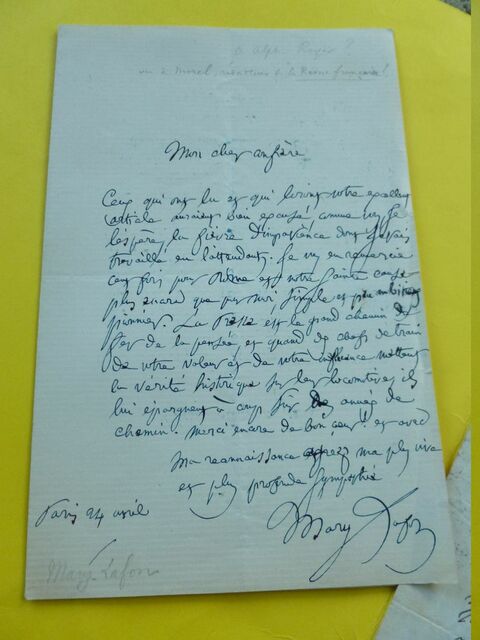 à Alph. Royer?
ou à Morel, rédacteur de la Revue française?
Mon cher confrère
Ceux qui ont lu et qui liront votre excellent
article auraient bien excusé comme vous je
l'espère, la fièvre d'impatience dont j'étais
travaillé en l'attendant. Je vous en remercie
cent fois pour Rome et notre sainte cause
plus encore que pour moi, simple et
pionnier. La Presse est le grand chemin de
fer de la pensée et quand de chefs de train
de votre valeur et de votre influence mettent
la vérité historique sur les locomotives ils
lui épargnent à coup sûr des années de
chemin. Merci encore de bon cœur!! et avec
ma reconnaissance agréez ma plus vive
et plus profonde sympathie
Mary Lafon
Paris 24 avril
Mary-Lafon